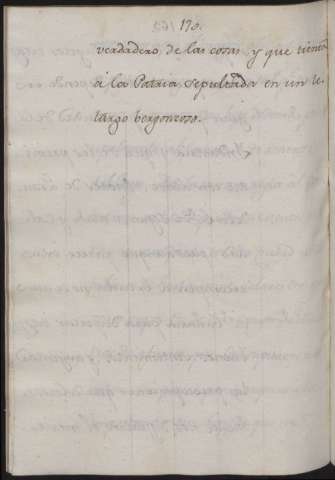 170.
verdadero de las cosas, y que tienen
á la Patria sepultada en un le-
targo bergonzoso.